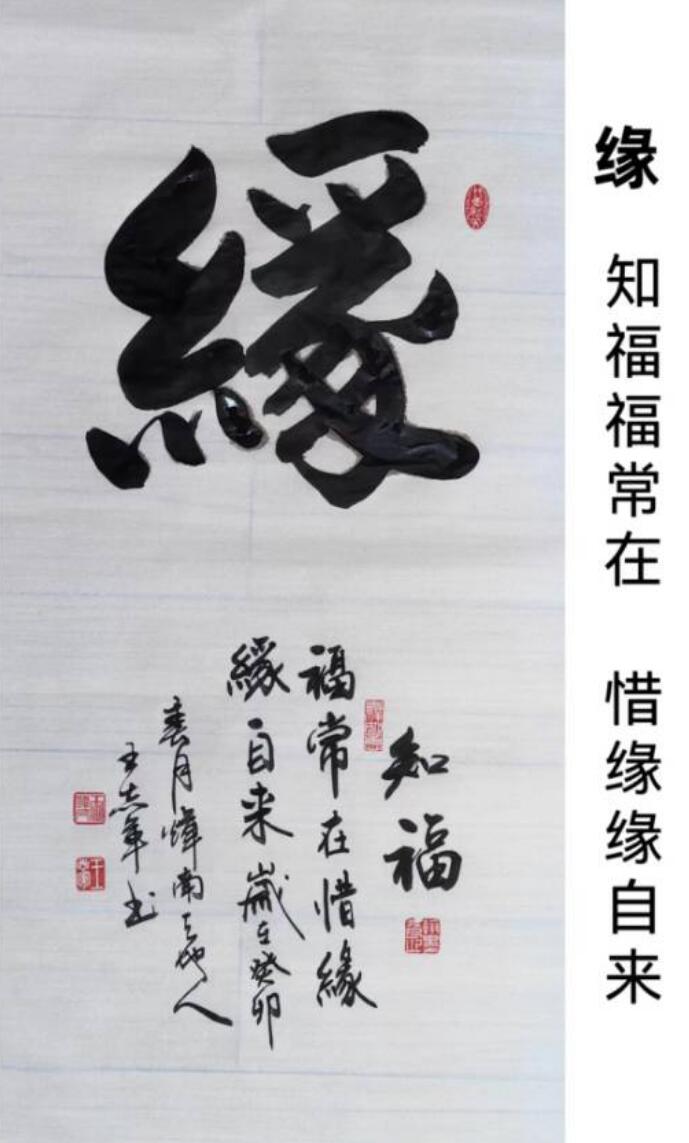 緣
知福
福常在惜緣
緣自来歲在癸卯
春月
人
王志軍书
缘
知福福常在
惜缘缘自来